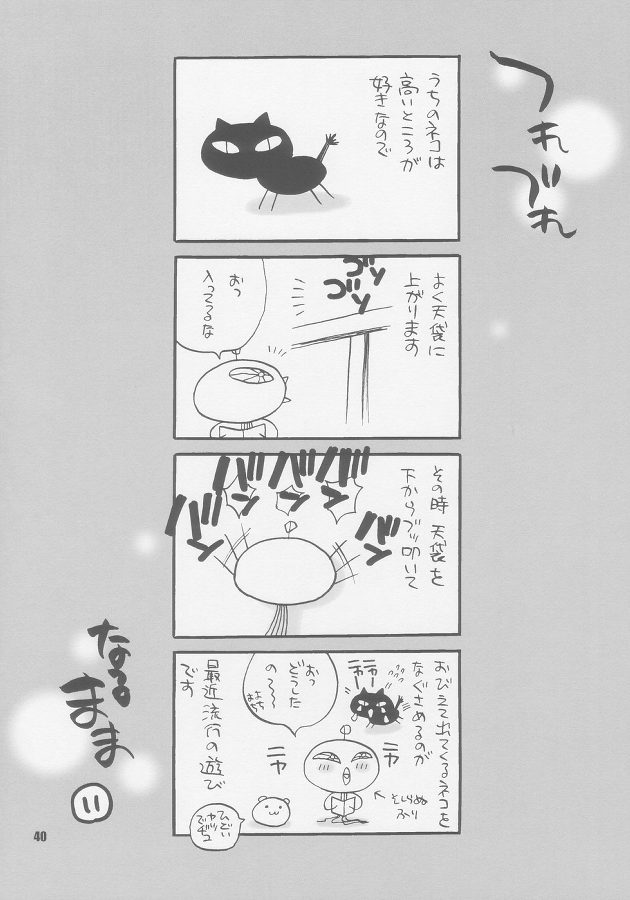 つれづれ
うちのネコは
高いところが
好きなので
よく天袋に
上がります
ゴソ
ゴソ
おっ
入ってるな
その時 天袋を
下からブッ叩いて
バン
バン
バン
バン
バン
おびえて出てくるネコを
なぐさめるのが
ニャー
ニャー
おっ
どうした
の〜〜
よちよち
最近流行の遊び
です
ニヤ
ニヤ
そしらぬ
ふり
ひどい
ヤツ
でチュ
なるまま
11
40